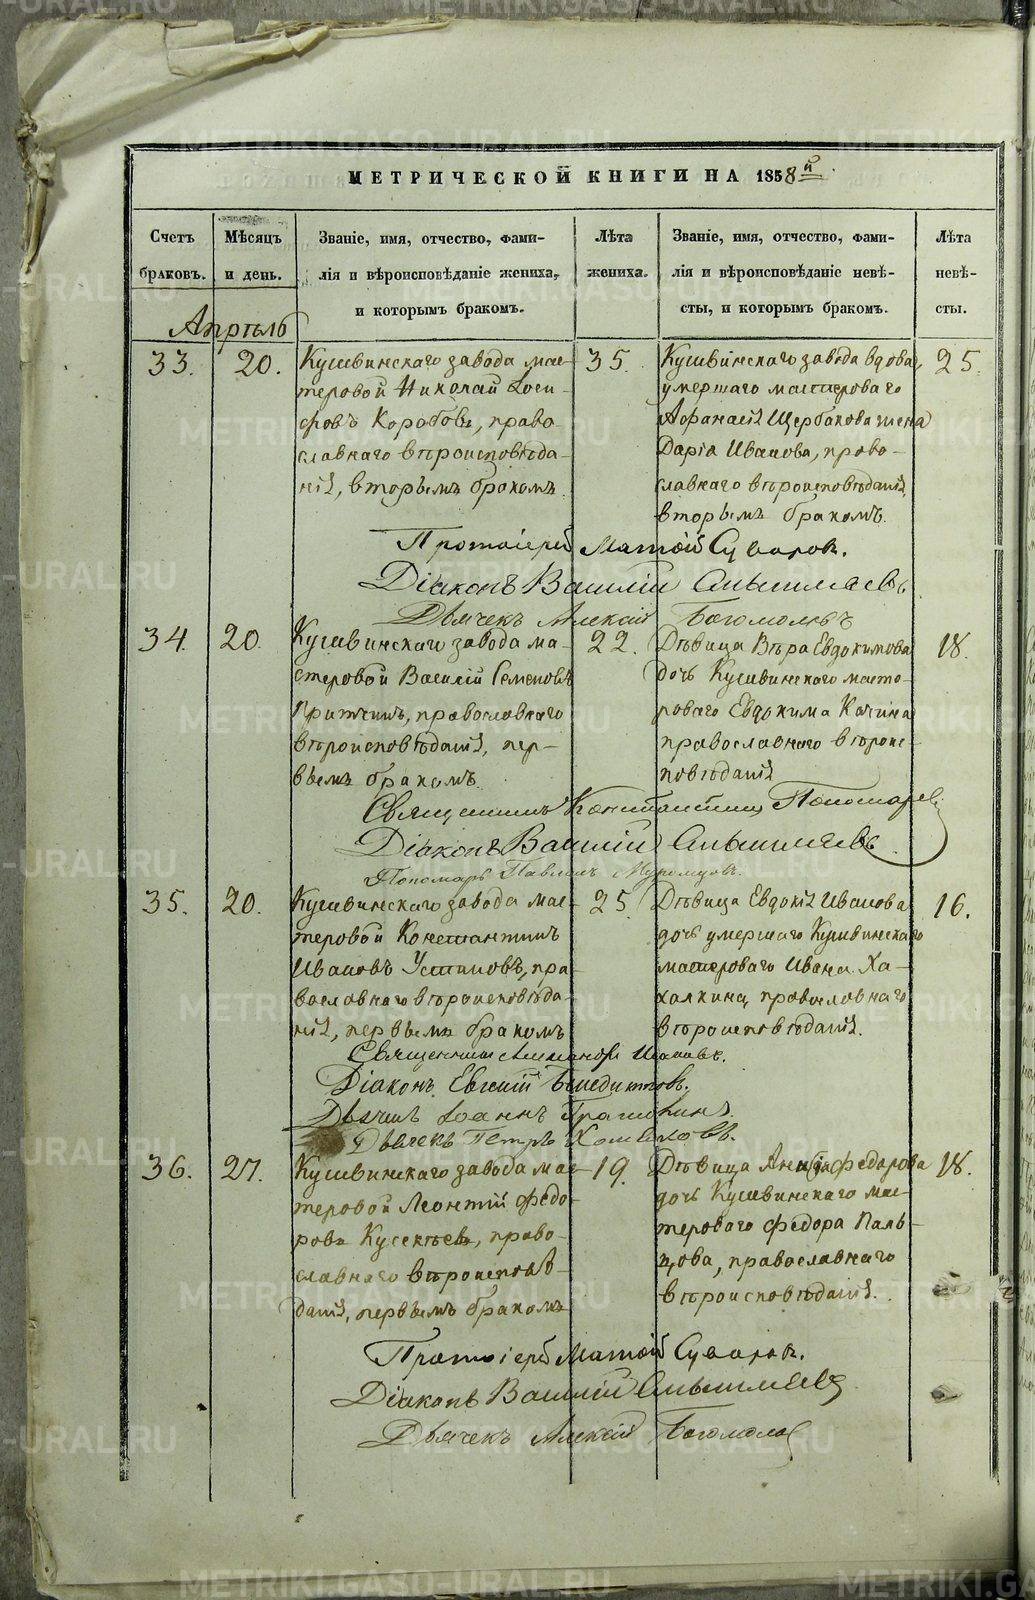 МЕТРИЧЕСКОЙ КНИГИ НА 1858й.
Счетъ браковъ.
Мѣсяцъ и день.
Званіе, имя, отчество, фами-
лія и вѣроисповѣданіе жениха,
и которымъ бракомъ.
Лѣта жениха.
Званіе, имя, отчество, фами-
лія и вѣроисповѣданіе невѣ-
сты, и которымъ бракомъ.
Лѣта невѣ-
сты.
Апрѣль
33. 20.
Кушвинскаго завода мас-
теровой Николай Іоси-
фовъ Коробовъ, право-
славнаго вѣроисповѣда-
нія, вторымъ бракомъ
35.
Кушвинскаго завода вдова,
умершаго мастероваго
Афанасія Щербакова жена
Дарія Иванова, право-
славнаго вѣроисповѣданія,
вторымъ бракомъ.
25
Протоіерей Матѳій Суворовъ.
Діаконъ Василій
Дьячекъ Алексій Богомоловъ
34. 20.
Кушвинскаго завода ма-
стеровой Василій Семеновъ
православнаго
вѣроисповѣданія, пер-
вымъ бракомъ.
22.
Дѣвица Вѣра Евдокимова
дочь Кушвинскаго масте-
роваго Евдокима Качина
православнаго вѣроис-
повѣданія
18.
Священникъ Константинъ Пономаревъ
Діаконъ Василій
Пономарь Павелъ Муромцовъ.
35. 20.
Кушвинскаго завода мас-
теровой Константинъ
Ивановъ Устиновъ, пра-
вославнаго вѣроисповѣда-
нія, первымъ бракомъ
25
Дѣвица Евдокія Иванова
дочь умершаго Кушвинскаго
мастероваго Ивана Ха-
халкина, православнаго
вѣроисповѣданія.
16.
Священникъ Александръ
Діаконъ Евгеній Бенедиктовъ.
Дьячекъ Іоаннъ
Дьячекъ Петръ Хомяковъ.
36. 27.
Кушвинскаго завода мас-
теровой Леонтій Федо-
ровъ право-
славнаго вѣроисповѣ-
данія, первымъ бракомъ
19.
Дѣвица Анисія Федорова
дочь Кушвинскаго мас-
тероваго Федора Паль-
цова, православнаго
вѣроисповѣданія.
18.
Протоіерей Матѳій Суворовъ.
Діаконъ Василій
Дьячекъ Алексій Богомоловъ
METRIKI.GASO-URAL.RU